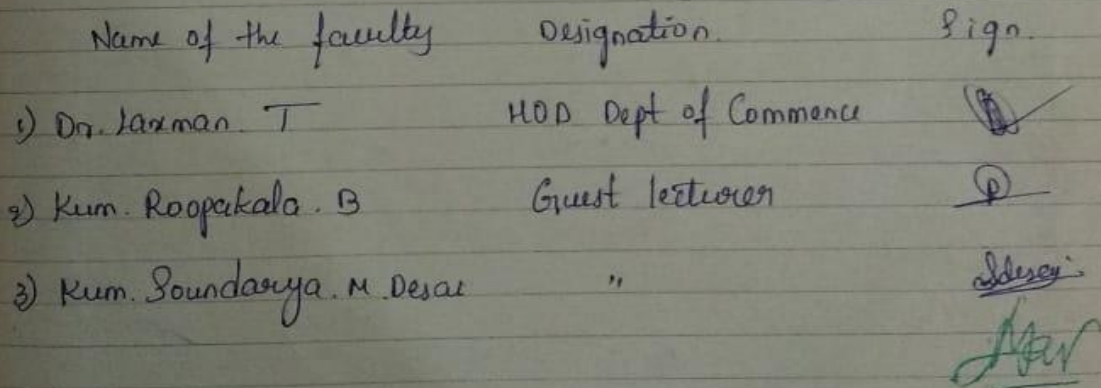 Name of the faculty Designation. Sign.
1) Dr. Laxman. T HOD Dept of Commerce
2) Kum. Roopakala. B Guest lecturer
3) Kum. Soundarya. M. Desai " Sdesai